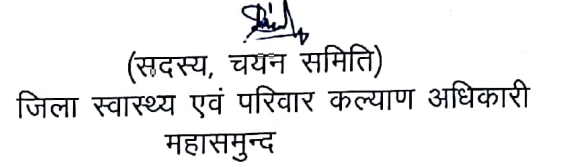 (सदस्य, चयन समिति)
जिला स्वास्थ्य एवं परिवार कल्याण अधिकारी
महासमुन्द